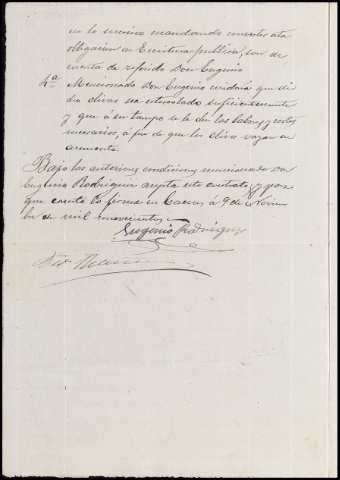 obligacion en Escritura publica, son de
cuenta de referido Don Eugenio
4ª Mencionado Don Eugenio cuidará que di
cho olivar sea estercolado suficientemente
y que á su tiempo se le den las labores y cortes
necesarios, á fin de que los olivos vayan en
aumento.
Bajo las anteriores condiciones mencionado Don
Eugenio Rodriguez acepta este contrato, y para
que conste lo firma en Caceres á 9 de Noviem
bre de mil novecientos
Eugenio Rodriguez